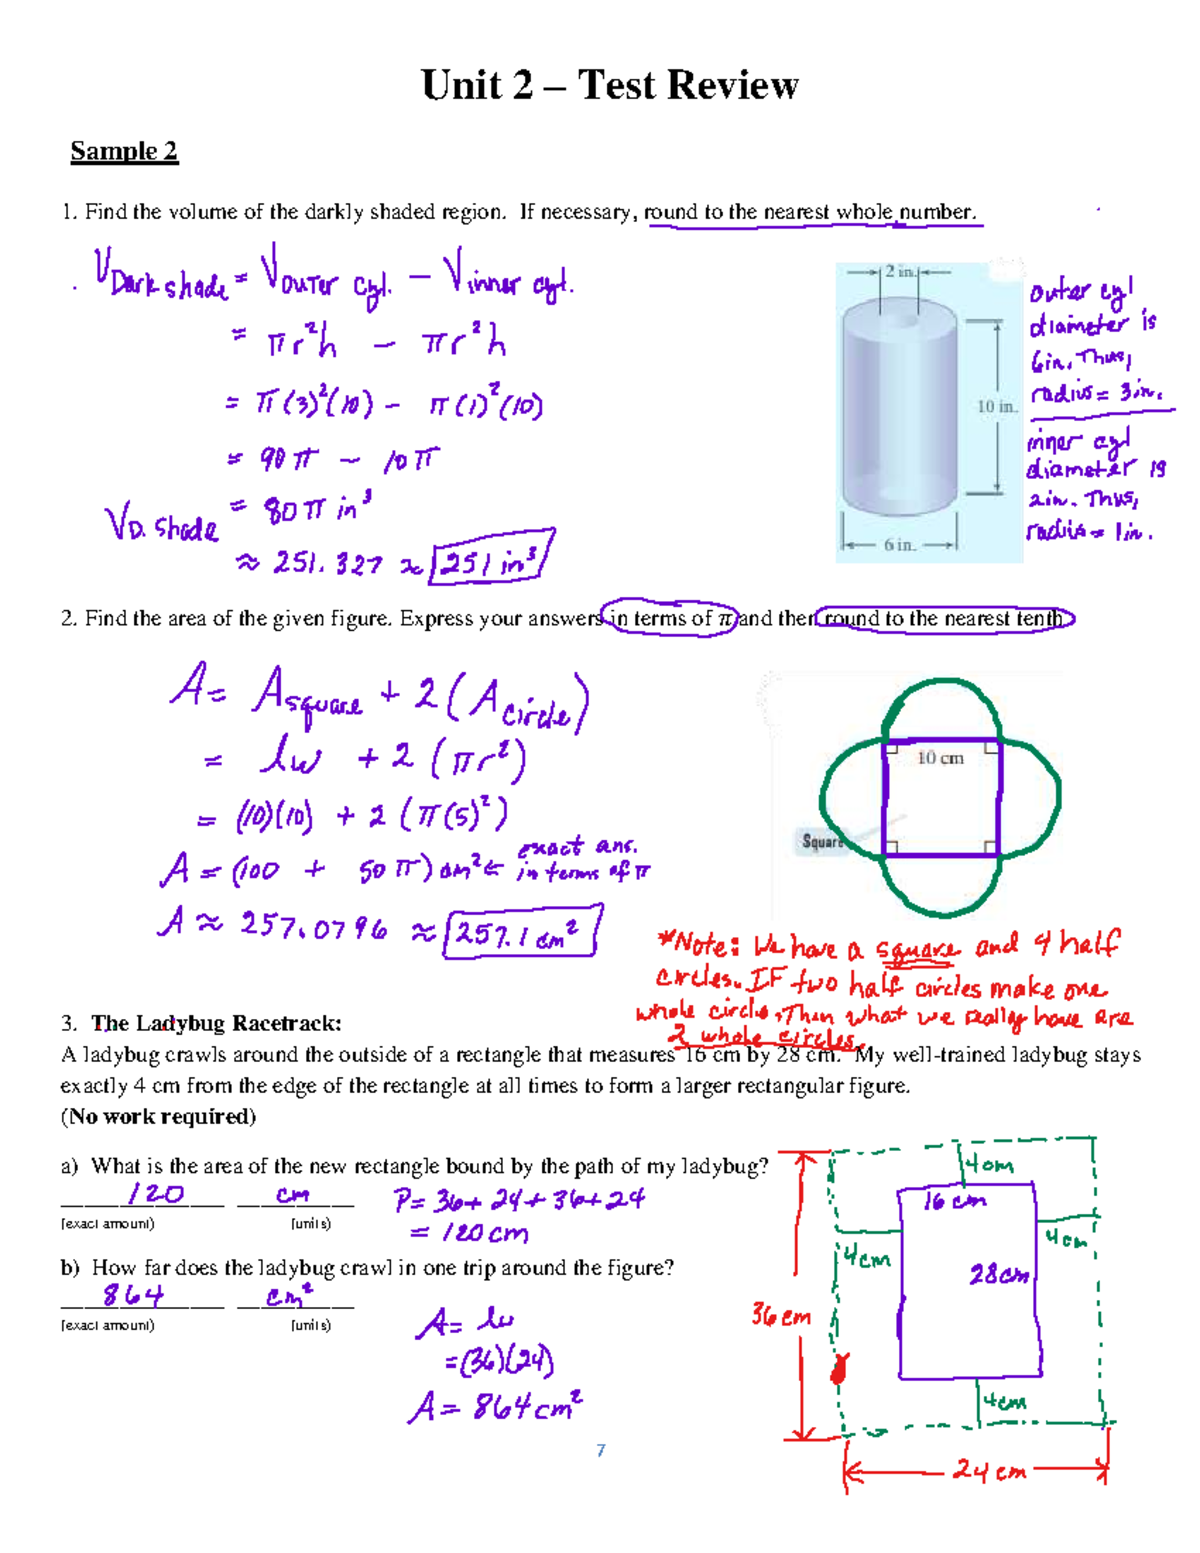 Unit 2 – Test Review
Sample 2
1. Find the volume of the darkly shaded region. If necessary, round to the nearest whole number.
V Dark shade = V outer cyl. − V inner cyl.
= πr²h − πr²h
= π(3)²(10) − π(1)²(10)
= 90π − 10π
V D. shade = 80π in³
≈ 251.327 ≈ 251 in³
2 in.
10 in.
6 in.
outer cyl
diameter is
6in. Thus,
radius = 3in.
inner cyl
diameter is
2in. Thus,
radius = 1in.
2. Find the area of the given figure. Express your answers in terms of π and then round to the nearest tenth
A = A square + 2(A circle)
= lw + 2(πr²)
= (10)(10) + 2(π(5)²)
A = (100 + 50π) cm² ← exact ans. in terms of π
A ≈ 257.0796 ≈ 257.1 cm²
10 cm
Square
*Note: We have a square and 4 half
circles. IF two half circles make one
whole circle, Then what we really have are
2 whole circles.
3. The Ladybug Racetrack:
A ladybug crawls around the outside of a rectangle that measures 16 cm by 28 cm. My well-trained ladybug stays
exactly 4 cm from the edge of the rectangle at all times to form a larger rectangular figure.
(No work required)
a) What is the area of the new rectangle bound by the path of my ladybug?
120 cm P = 36+24+36+24
(exact amount) (units) = 120 cm
b) How far does the ladybug crawl in one trip around the figure?
864 cm²
(exact amount) (units)
A = lw
= (36)(24)
A = 864 cm²
4cm
16 cm
4cm
4cm
28cm
36 cm
4cm
24 cm
7